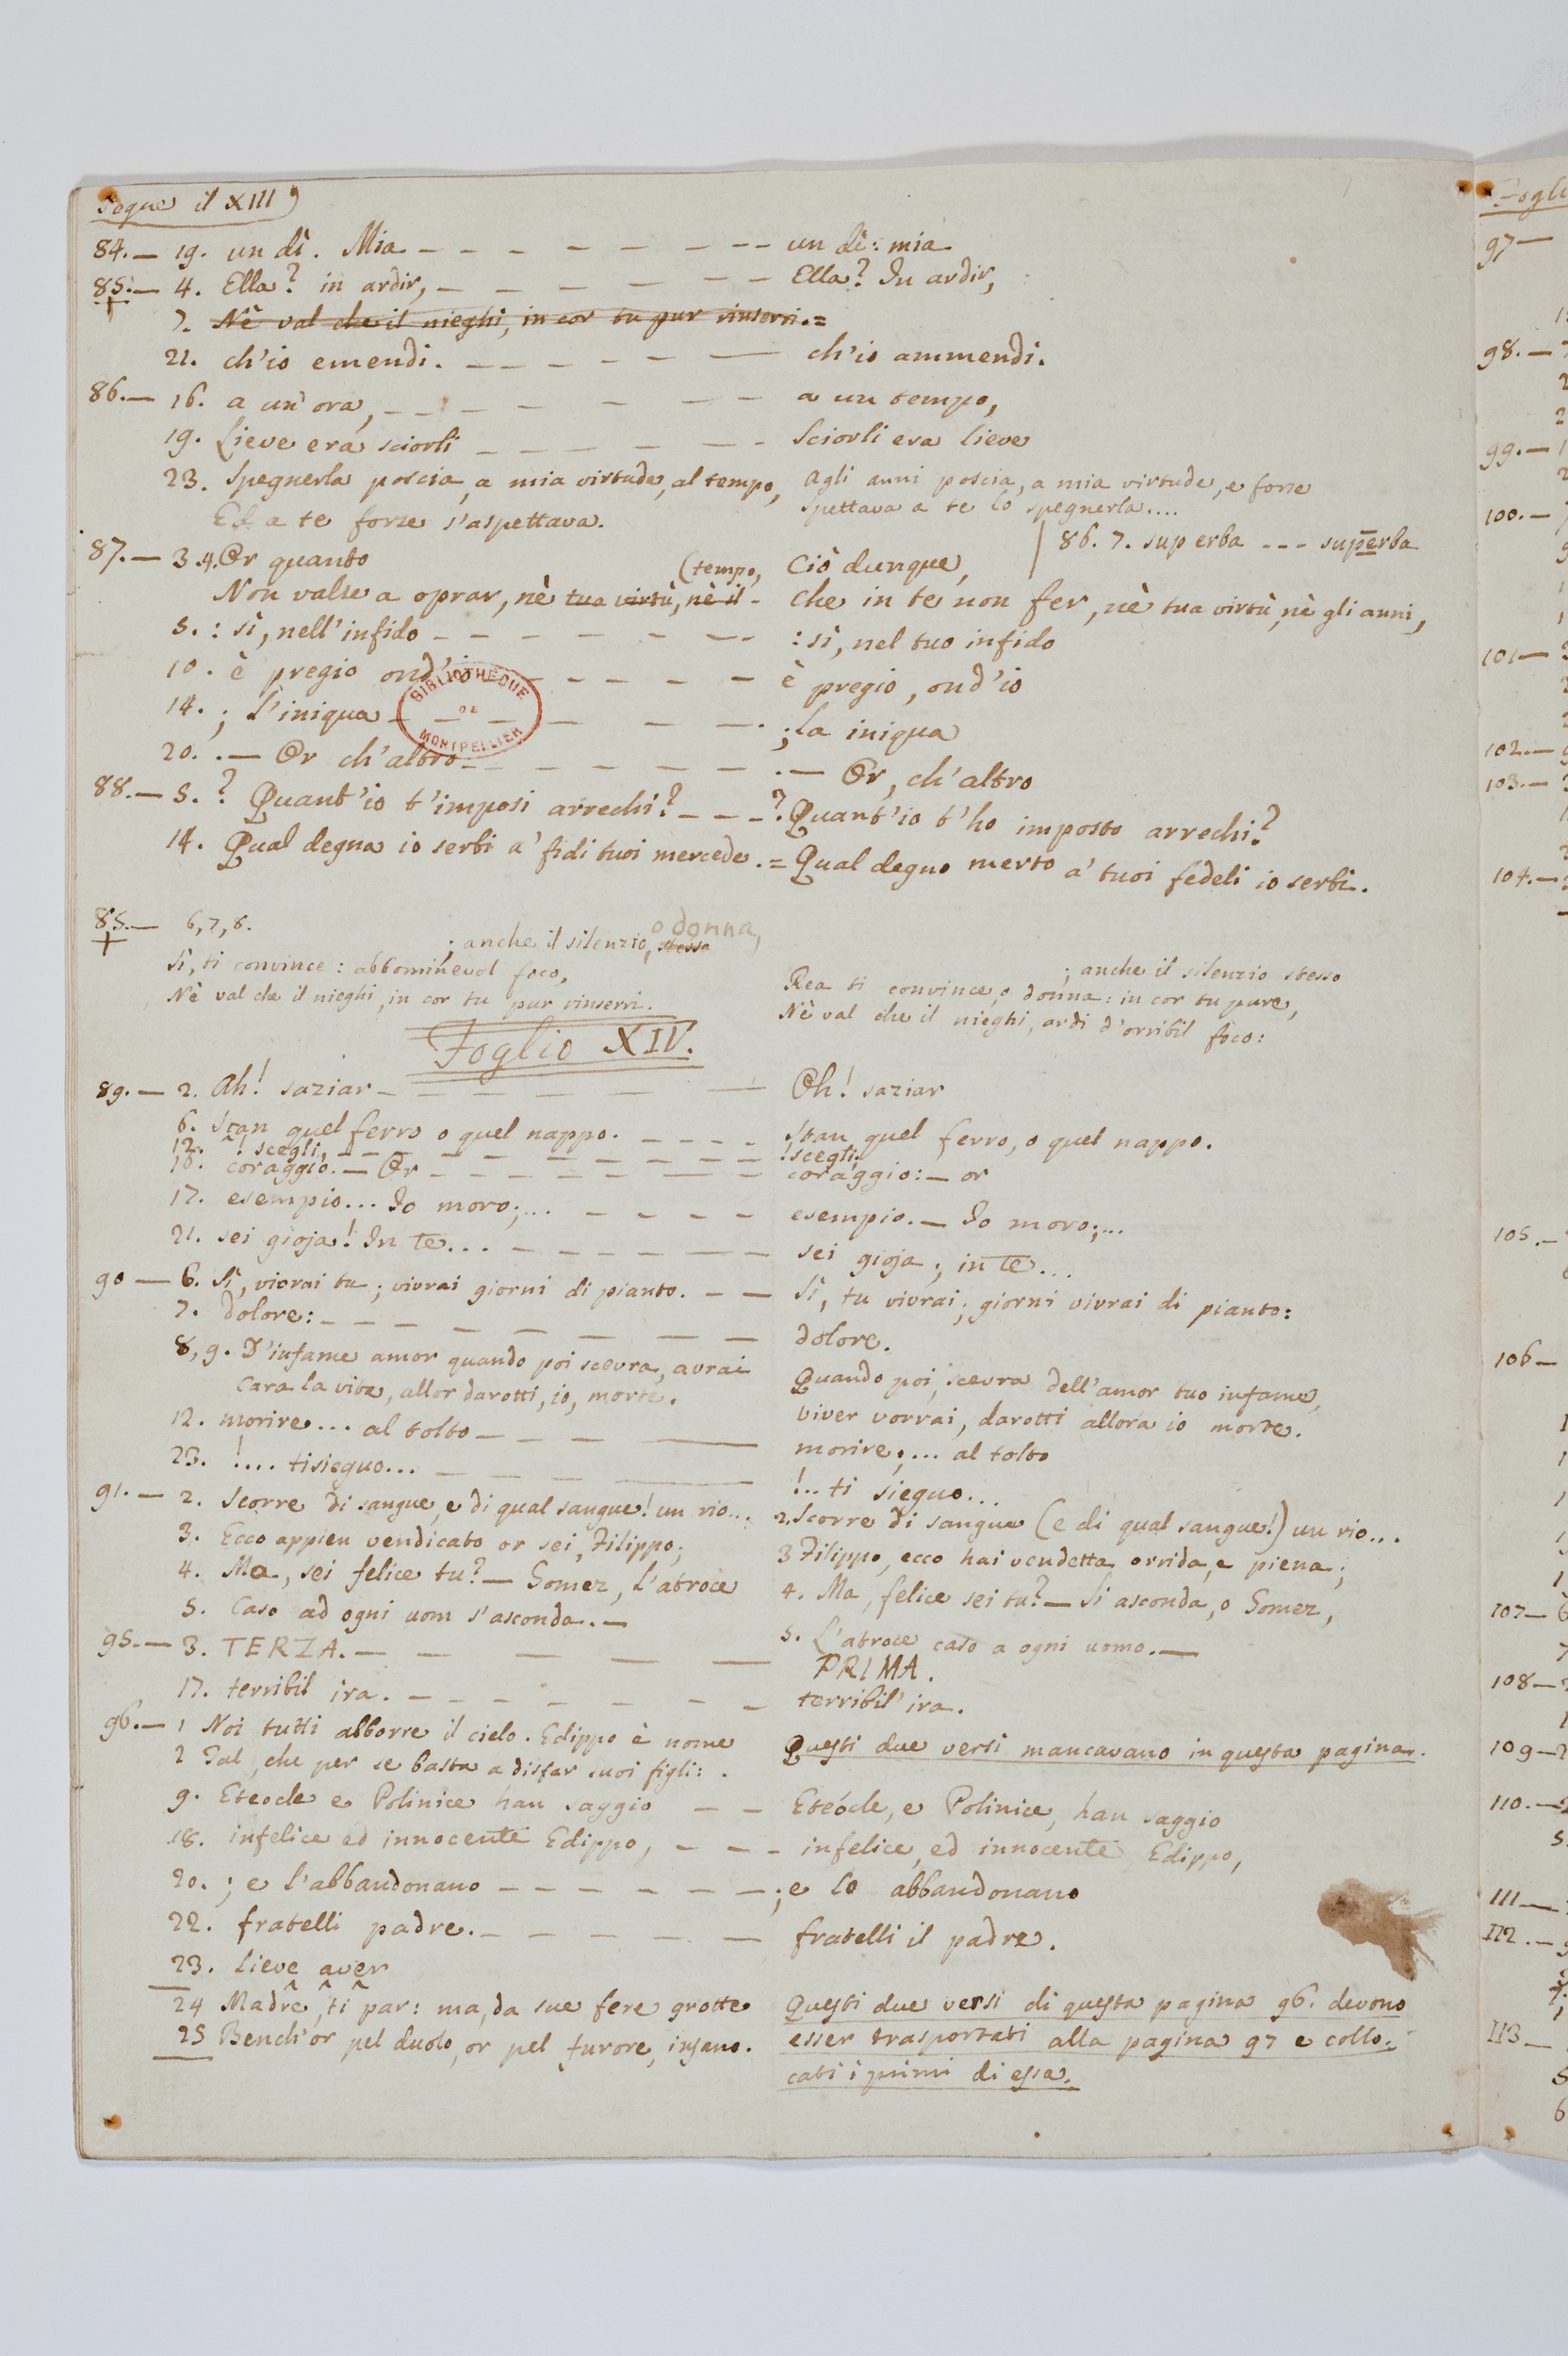 Segue il XIII
84. — 19. un dì. Mia - - - - - - - - un dì: mia
85. — 4. Ella? in ardir, - - - - - - - Ella? In ardir,
7. Nè val che il nieghi, in cor tu pur rinserri. =
21. ch'io emendi. - - - - - — ch'io ammendi.
86. — 16. a un'ora, - - - - - - - a un tempo,
19. Lieve era sciorli - - - - - - Sciorli era lieve
23. Spegnerla poscia, a mia virtude, al tempo, Agli anni poscia, a mia virtude, e forse
Ed a te forse s'aspettava. Spettava a te lo spegnerla....
86. 7. superba --- superba
87. — 3.4. Or quanto (tempo, Ciò dunque,
Non valse a oprar, nè tua virtù, nè il - Che in te non fer, nè tua virtù, nè gli anni,
5. : sì, nell'infido - - - - - - - : sì, nel tuo infido
10. è pregio ond'io - - - - - è pregio, ond'io
14. ; l'iniqua - - - - - - ; la iniqua
20. . — Or ch'altro - - - - - - . — Or, ch'altro
88. — 5. ? Quant'io t'imposi arrechi? - - - ? Quant'io t'ho imposto arrechi?
14. Qual degna io serbi a' fidi tuoi mercede. = Qual degno merto a' tuoi fedeli io serbi.
85. — 6, 7, 8.
; anche il silenzio, stesso o donna, ; anche il silenzio stesso
Sì, ti convince: abbominevol foco, Rea ti convince, o donna: in cor tu pure,
Nè val che il nieghi, in cor tu pur rinserri. Nè val che il nieghi, ardi d'orribil foco:
Foglio XIV.
89. — 2. Ah! saziar - - - - - - — Oh! saziar
6. Stan quel ferro o quel nappo. - - - - Stan quel ferro, o quel nappo.
12. ! scegli, - - - - - - - - ! scegli;
16. coraggio. — Or - - - - - - - coraggio: — or
17. esempio... Io moro;... - - - - esempio. — Io moro;...
21. sei gioja! In te... - - - - - - sei gioja; in te...
90 — 6. Sì, vivrai tu; vivrai giorni di pianto. - - Sì, tu vivrai; giorni vivrai di pianto:
7. dolore: - - - - - - - - dolore.
8, 9. D'infame amor quando poi scevra, avrai Quando poi, scevra dell'amor tuo infame,
Cara la vita, allor darotti, io, morte. Viver vorrai, darotti allora io morte.
12. morire... al tolto - - - — morire;... al tolto
23. !.... ti sieguo... - - - — !.. ti sieguo...
91. — 2. Scorre di sangue, e di qual sangue! un rio... 2. Scorre di sangue (e di qual sangue!) un rio...
3. Ecco appien vendicato or sei, Filippo; 3 Filippo, ecco hai vendetta orrida, e piena;
4. Ma, sei felice tu? — Gomez, l'atroce 4. Ma, felice sei tu? — Si asconda, o Gomez,
5. Caso ad ogni uom s'asconda. — 5. L'atroce caso a ogni uomo. —
95. — 3. TERZA. — - - - - PRIMA.
17. terribil ira. - - - - - - - terribil' ira.
96. — 1 Noi tutti abborre il cielo. Edippo è nome Questi due versi mancavano in questa pagina.
2 Tal, che per se basta a disfar suoi figli: .
9. Eteocle e Polinice han saggio - - Eteócle, e Polinice, han saggio
18. infelice ed innocente Edippo, - - - infelice, ed innocente Edippo,
20. ; e l'abbandonano - - - - - - ; e lo abbandonano
22. fratelli padre. - - - - - - fratelli il padre.
23. Lieve aver
24 Madre, ti par: ma, da sue fere grotte Questi due versi di questa pagina 96. devono
25 Bench'or pel duolo, or pel furore, insano. esser trasportati alla pagina 97 e collo-
cati i primi di essa.
BIBLIOTHEQUE
DE
MONTPELLIER
Fogli
97 —
98. —
99. —
100. —
101 —
102. —
103. —
104. —
105. —
106 —
107 —
108 —
109 —
110. —
111 —
112. —
113 —